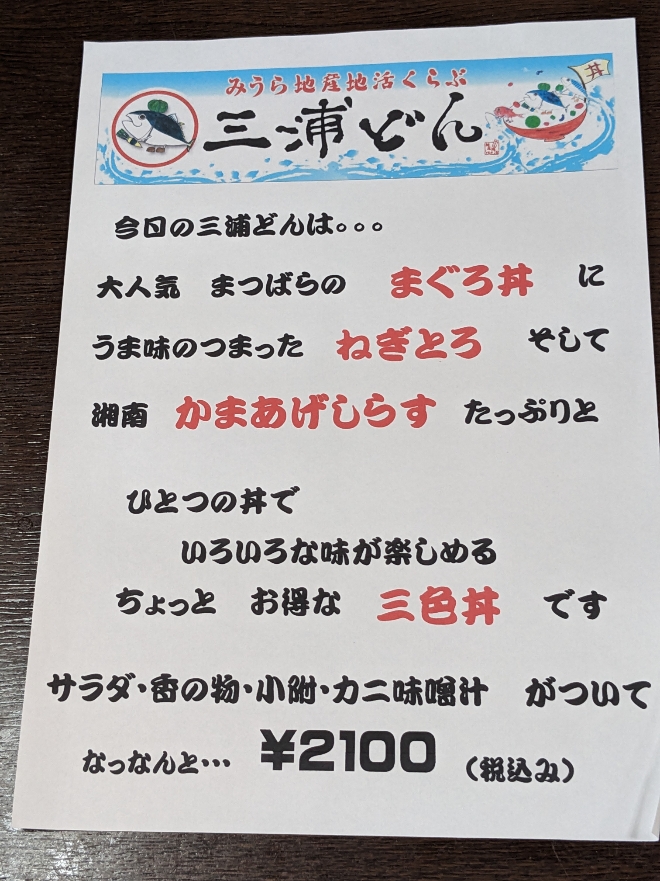 みうら地産地活くらぶ
三浦どん
丼
今日の三浦どんは。。。
大人気 まつばらの まぐろ丼 に
うま味のつまった ねぎとろ そして
湘南 かまあげしらす たっぷりと
ひとつの丼で
いろいろな味が楽しめる
ちょっと お得な 三色丼 です
サラダ・香の物・小附・カニ味噌汁 がついて
なっなんと… ¥2100 (税込み)